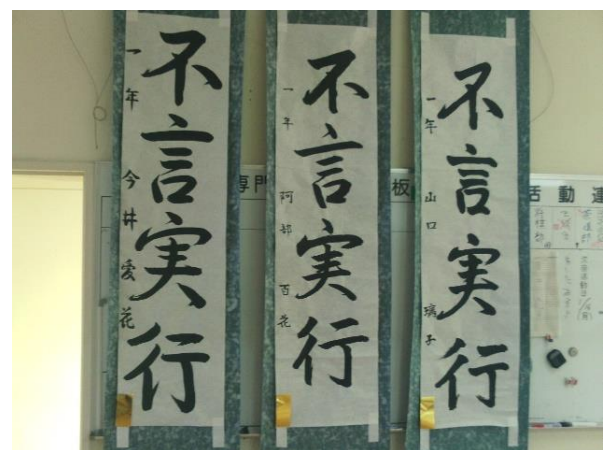 不言実行
一年 今井愛花
不言実行
一年 阿部百花
不言実行
一年 山口璃子
専門
板
活動連